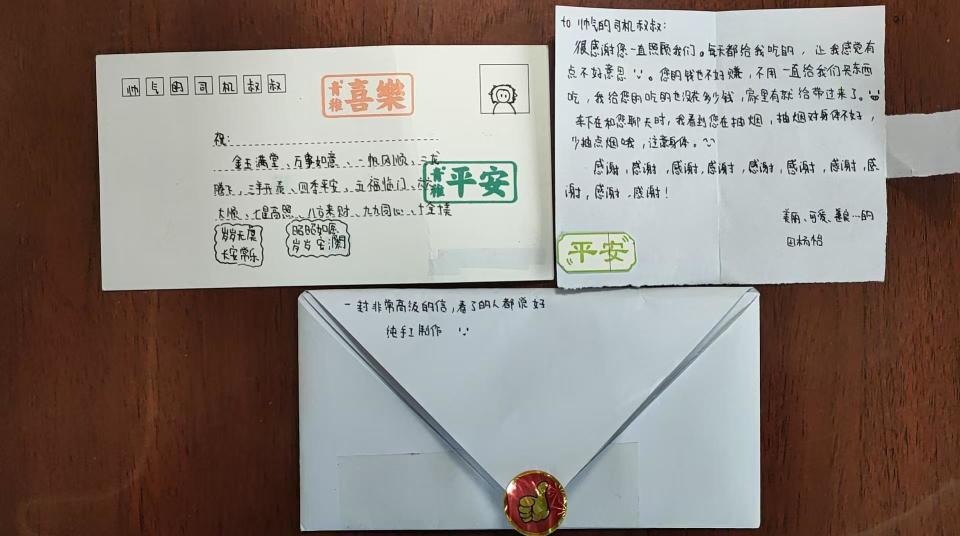 帅气的司机叔叔
青稚 喜樂
祝:
金玉满堂、万事如意、一帆风顺、二龙
腾飞、三羊开泰、四季平安、五福临门、
大顺、七星高照、八方来财、九九同心、十全十美
青稚 平安
岁岁无虞
长安常乐
昭昭如愿
岁岁安澜
to 帅气的司机叔叔:
很感谢您一直照顾我们。每天都给我吃的，让我感觉有
点不好意思。您的钱也不好赚，不用一直给我们买东西
吃，我给您的吃的也没多少钱，家里有就给带过来了。
车下在和您聊天时，我看到您在抽烟，抽烟对身体不好，
少抽点烟哦，注意身体。
感谢，感谢，感谢，感谢，感谢，感谢，感谢，感
谢，感谢，感谢！
美丽、可爱、善良…的
田杨怡
平安
一封非常高级的信，看了的人都说好
纯手工制作